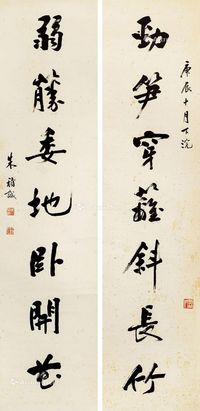 勁笋穿籬斜長竹
庚辰十月下浣
弱藤委地卧開花
朱福誠